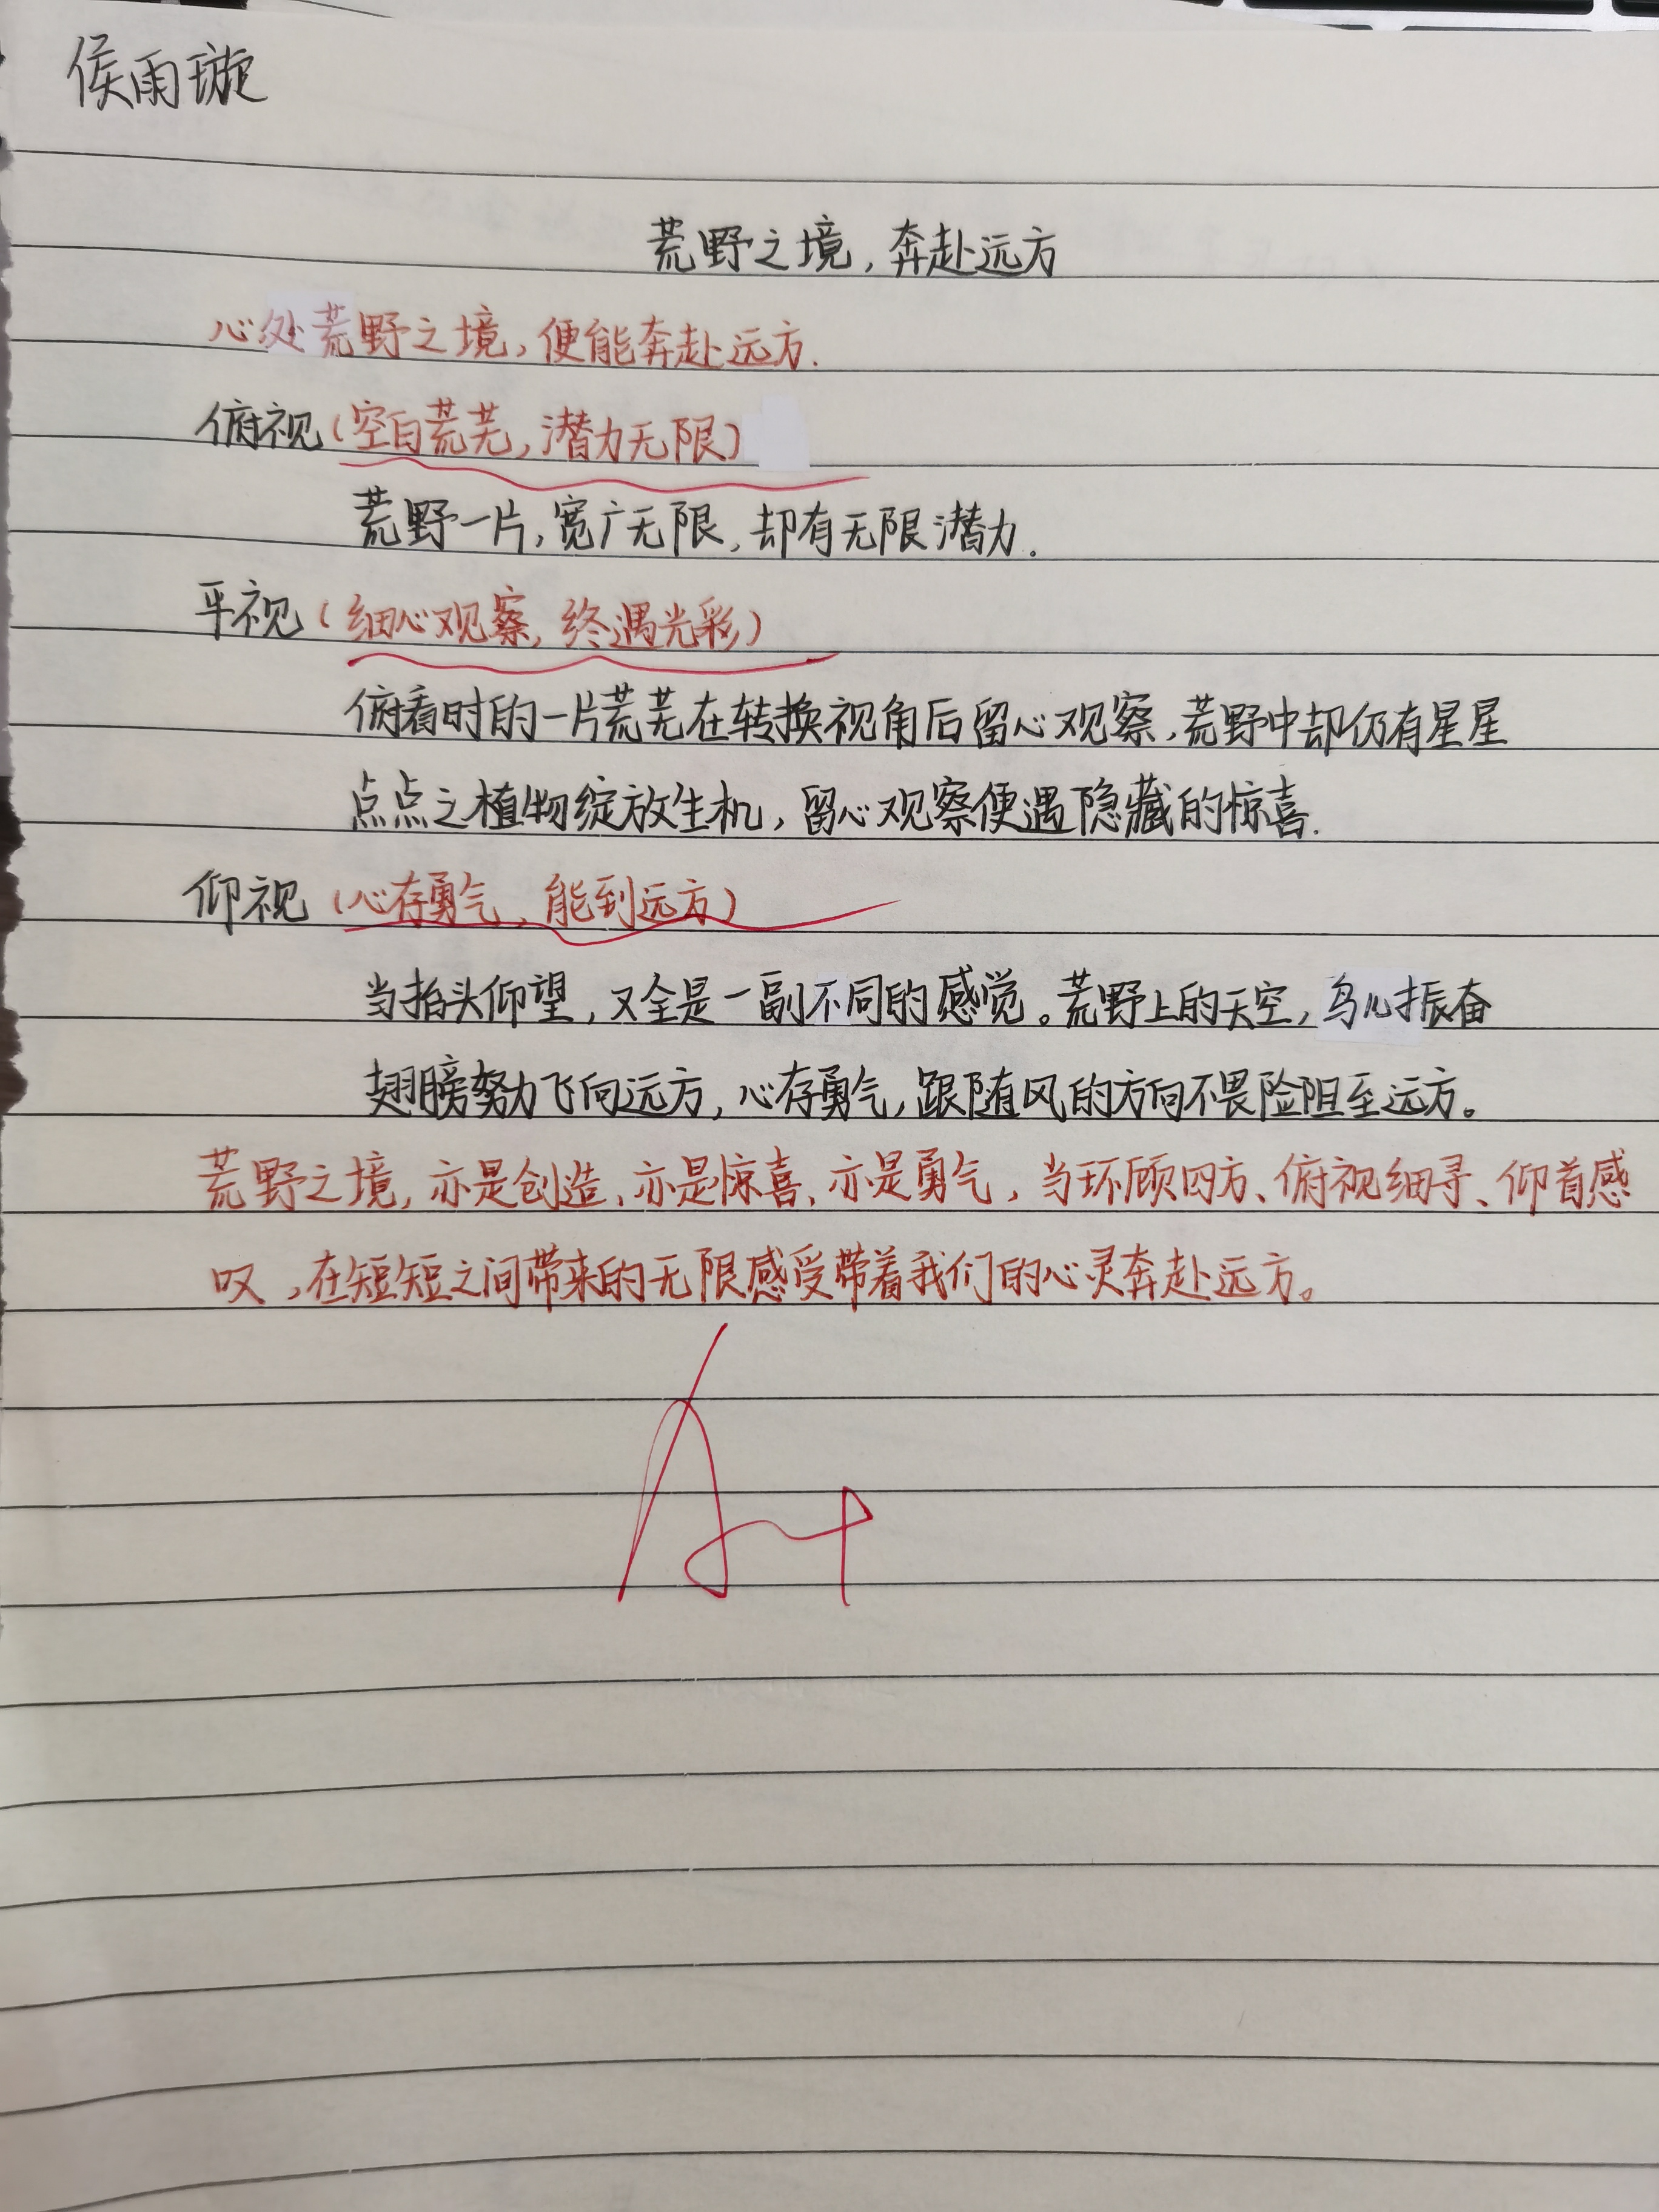 侯雨璇
荒野之境，奔赴远方
心处荒野之境，便能奔赴远方.
俯视（空白荒芜，潜力无限）
荒野一片，宽广无限，却有无限潜力.
平视（细心观察，终遇光彩）
俯看时的一片荒芜在转换视角后留心观察，荒野中却仍有星星
点点之植物绽放生机，留心观察便遇隐藏的惊喜.
仰视（心存勇气，能到远方）
当抬头仰望，又全是一副不同的感觉。荒野上的天空，鸟儿振奋
翅膀努力飞向远方，心存勇气，跟随风的方向不畏险阻至远方。
荒野之境，亦是创造、亦是惊喜、亦是勇气，当环顾四方、俯视细寻、仰首感
叹，在短短之间带来的无限感受带着我们的心灵奔赴远方。
A+